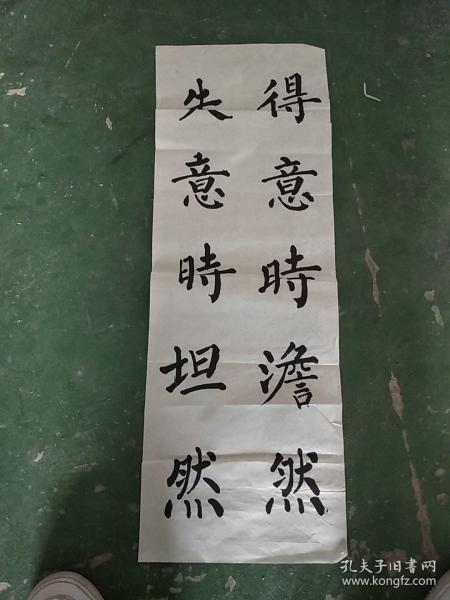 得意時澹然
失意時坦然
孔夫子旧书网
www.kongfz.com